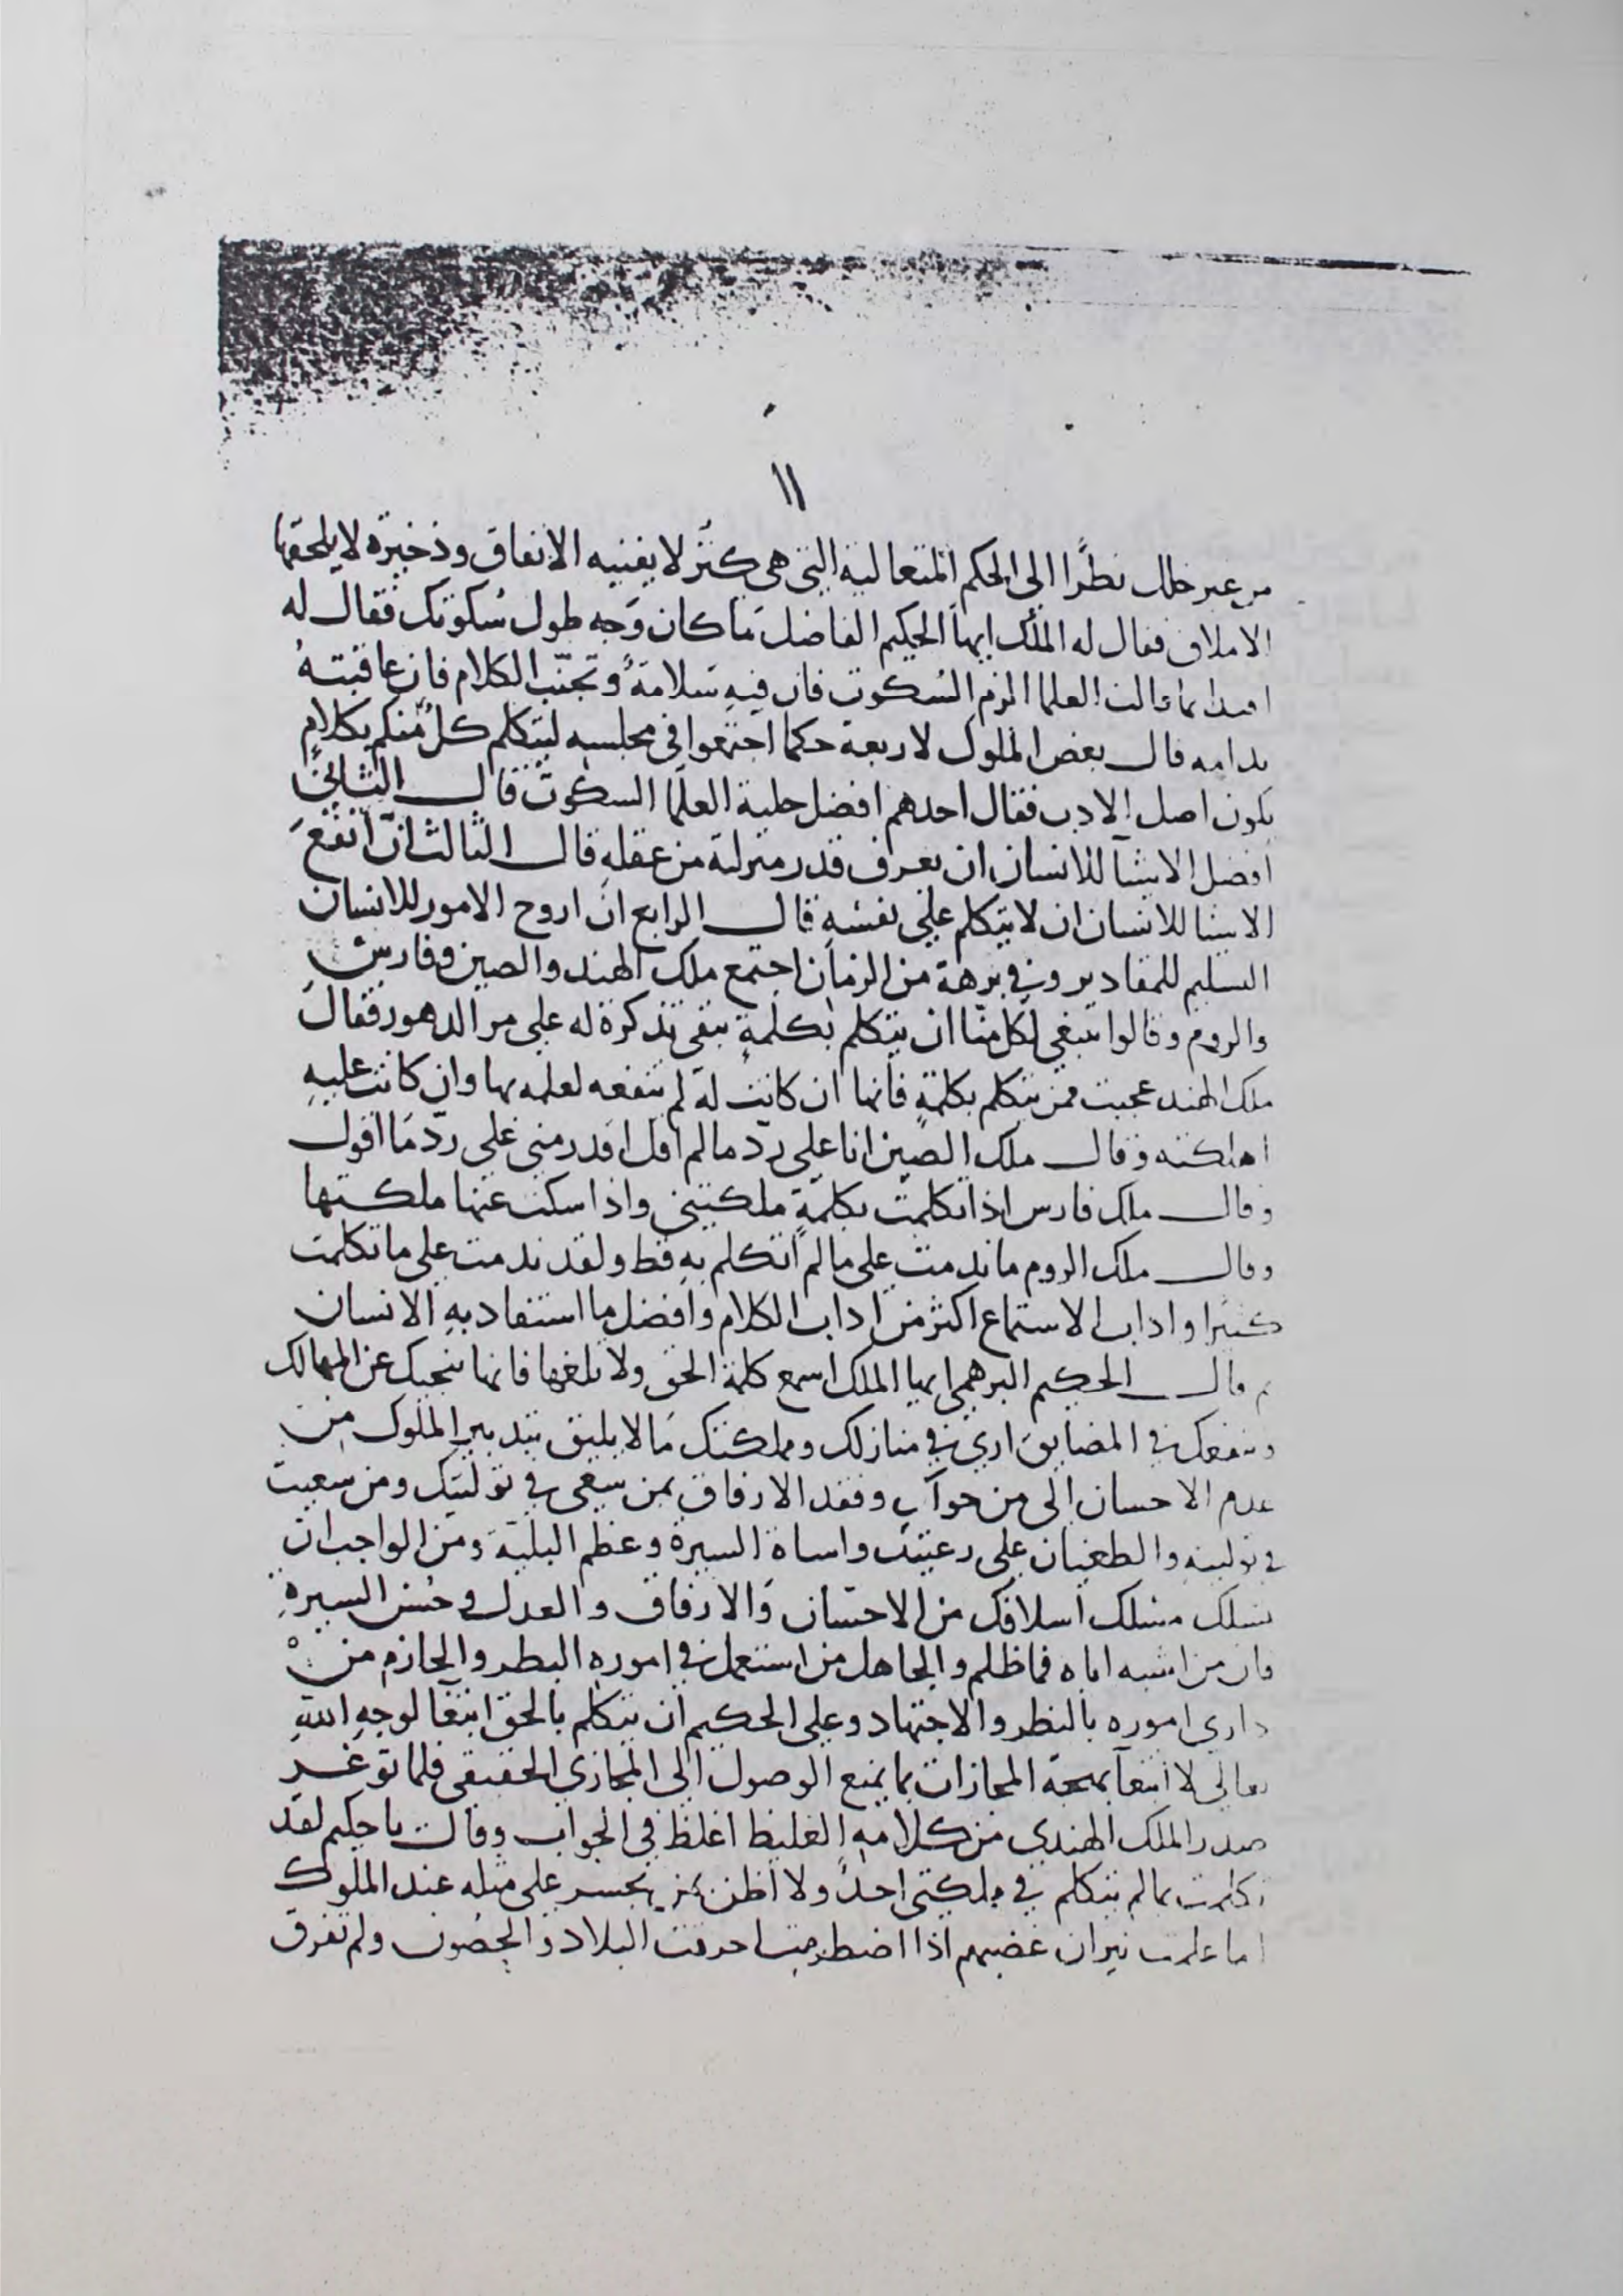 ١١
من غير خلل نظرًا الى الحكم المتعالية التي هي كنز لا يفنيه الانفاق وذخيرة لا يلحقها
الاملاق فقال له الملك ايها الحكيم الفاضل ما كان وجه طول سكوتك فقال له
بما قالت العلما الزم السكوت فان فيه سلامة وتجنب الكلام فان عاقبته
ندامه قال بعض الملوك لاربعة حكما اجتمعوا في مجلسه ليتكلم كل منكم بكلام
يكون اصل الادب فقال احدهم افضل حلية العلما السكوت قال الثاني
افضل الاشيآ للانسان ان يعرف قدر منزلته من عقله قال الثالث ان انفع
الاشيا للانسان ان لا يتكلم على نفسه قال الرابع ان اروح الامور للانسان
التسليم للمقادير وفي برهة من الزمان اجتمع ملك الهند والصين وفارس
والروم وقالوا ينبغي لكل منا ان يتكلم بكلمة تبقى تذكرة له على مر الدهور فقال
ملك الهند عجبت ممن يتكلم بكلمة فانها ان كانت له لم تنفعه لعلمه بها وان كانت عليه
اهلكته وقال ملك الصين انا على رد ما لم اقل اقدر مني على رد ما اقول
وقال ملك فارس اذا تكلمت بكلمة ملكتني واذا سكت عنها ملكتها
وقال ملك الروم ما ندمت على ما لم اتكلم به قط ولقد ندمت على ما تكلمت
كثيرا واداب الاستماع اكثر من اداب الكلام وافضل ما استفاد به الانسان
ثم قال الحكيم البرهمي ايها الملك اسمع كلمة الحق ولا تلغها فانها تنجيك عن المهالك
وتنفعك في المضايق ارى في منازلك ومملكتك ما لا يليق بتدبير الملوك من
عدم الاحسان الى من وفقد الارفاق بمن سعى في توليتك ومن سعيت
في توليته والطغيان على رعيتك واساة السيرة وعظم البلية ومن الواجب ان
تسلك مسلك اسلافك من الاحسان والارفاق والعدل وحسن السيرة
فان من اشبه اباه فما ظلم والجاهل من استعمل في اموره البطر والحازم من
دارى اموره بالنظر والاجتهاد وعلى الحكيم ان يتكلم بالحق ابتغآ لوجه الله
تعالى لا ابتغآ المجازات بما يمنع الوصول الى المجازي الحقيقي فلما توغر
صدر الملك الهندي من كلامه الغليظ اغلظ في الجواب وقال يا حكيم لقد
تكلمت بما لم يتكلم في مملكتي احد ولا اظن من يجسر على مثله عند الملوك
اما علمت نيران غضبهم اذا اضطرمت احرقت البلاد والحصون ولم تفرق